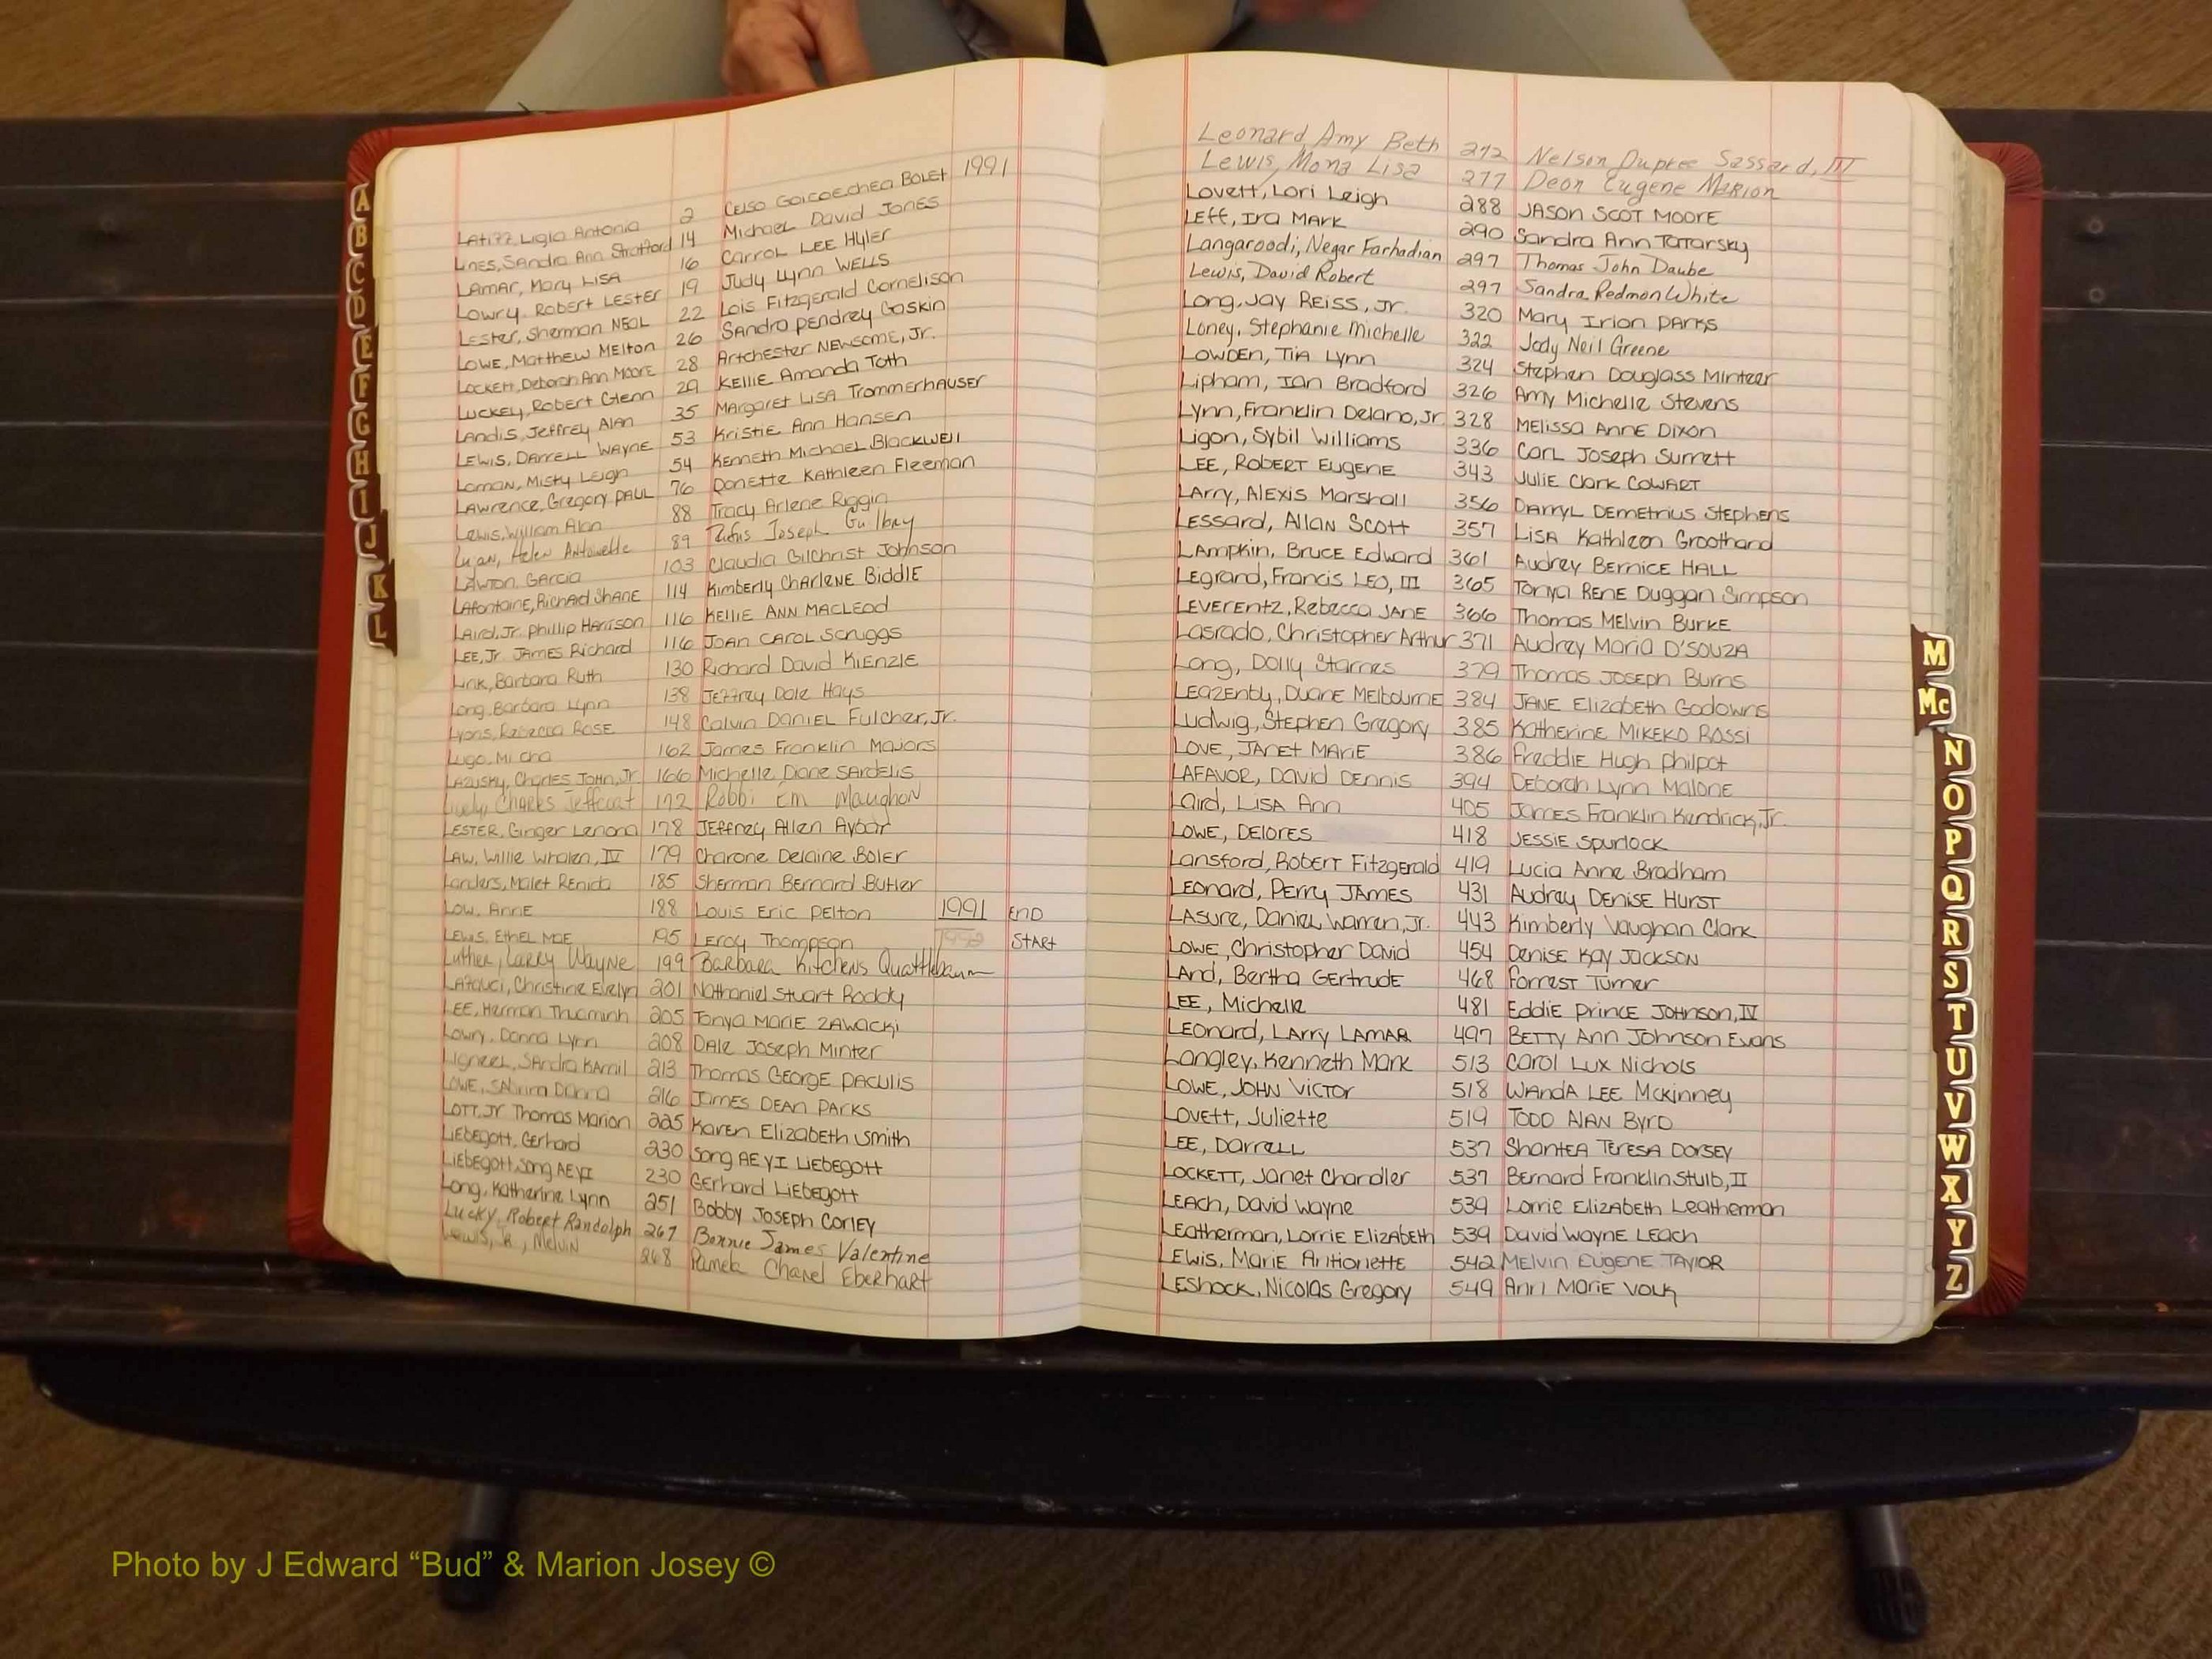 A
B
C
D
E
F
G
H
I
J
K
L
Ligia Antonia 2 CELSO Goicoechea BOLET 1991
LINES, SAndra Ann Strafford 14 Michael David JONES
LAMAR, Mary LISA 16 Carrol LEE Hyler
Lowry, Robert LESTER 19 Judy Lynn WELLS
LESTER, Sherman NEAL 22 Lois Fitzgerald Cornelison
LOWE, Matthew Melton 26 SANdra PENdrey Gaskin
LOCKETT, Deborah Ann MOORE 28 Artchester NEWSOME, Jr.
LUCKEY, Robert Glenn 29 KELLIE Amanda Toth
LANdis, JEFFREY Alan 35 MArgaret LISA Trommerhauser
LEWIS, DARRELL WAYNE 53 KristiE Ann Hansen
Loman, Misty Leigh 54 KENNETH Michael Blackwell
LAWRENCE, Gregory PAUL 76 DONETTE Kathleen Fleeman
Lewis, William Alan 88 Tracy Arlene Riggin
Lujan, Helen Antoinette 89 Rufus Joseph Guilbry
LAWTON, GArcia 103 Claudia Gilchrist Johnson
LAfontaine, Richard ShANE 114 Kimberly CharlENE BiddlE
LAird, Jr. Phillip Harrison 116 KELLIE ANN MACLEOD
LEE, Jr. JAMES Richard 116 JOAN CAROL Scruggs
Link, Barbara Ruth 130 Richard David KIENZLE
Long, Barbara Lynn 138 Jeffrey Dale Hays
Lyons, Rebecca ROSE 148 Calvin DANIEL Fulcher, Jr.
Lugo, Mi Cha 162 James Franklin Majors
LAZUSKY, Charles JOHN, Jr. 166 Michelle Diane SArdelis
Lively, Charles Jeffcoat 172 Robbi Em Maughon
LESTER, Ginger Lenora 178 JEffrey Allen Aybar
LAW, Willie Whalen, IV 179 Charone Delaine BOLER
Landers, Malet RENida 185 Sherman Bernard Butler
LOW, ANNE 188 Louis Eric PELTON 1991 END
LEWIS, EtHEL MAE 195 LEROY Thompson 1992 START
Luther, Larry Wayne 199 Barbara Kitchens Quattlebaum
Christine Evelyn 201 Nathaniel Stuart Roddy
LEE, Herman 205 Tonya MARIE ZAWACKI
Lowry, Donna Lynn 208 DALE JOSEPH MINTER
SAndra 213 Thomas GEORGE PACULIS
LOWE, SAbrina Donna 216 JAMES DEAN PARKS
LOTT, Jr Thomas Marion 225 KAREN ElizabEth Smith
LIEbEgott, GErhard 230 Song AE YI LIEBEGOTT
LIEBEgott, Song AE YI 230 GErhard LIEbEgott
Long, Katherine Lynn 251 Bobby JOSEPH CORLEY
Lucky, Robert Randolph 267 Bonnie James Valentine
Lewis, Jr., Melvin 268 Pamela Chanel Eberhart
Leonard, Amy Beth 272 Nelson Dupree Sassard, III
Lewis, Mona Lisa 277 Deon Eugene Marion
LOVETT, Lori Leigh 288 JASON SCOT MOORE
LEFF, Ira MARK 290 Sandra Ann TATARSKY
Langaroodi, Negar Farhadian 297 Thomas John Daube
Lewis, David Robert 297 Sandra Redmon White
Long, Jay REISS, Jr. 320 Mary Irion PARKS
Loney, Stephanie Michelle 322 Jody Neil Greene
LOWDEN, TIA Lynn 324 Stephen Douglass Mintzer
Lipham, Ian Bradford 326 Amy Michelle Stevens
Lynn, Franklin Delano, Jr. 328 MELISSA ANNE DIXON
Ligon, Sybil Williams 336 CARL JOSEPH SURRETT
LEE, ROBERT EUGENE 343 JULIE Clark COWART
LARRY, ALEXIS Marshall 356 DARRYL DEMETRIUS STEPHENS
LESSARD, ALLAN SCOTT 357 LISA Kathleen Groothand
LAMPKIN, BRUCE Edward 361 Audrey BERNICE HALL
LEGRAND, Francis LEO, III 365 Tonya RENE Duggan Simpson
LEVERENTZ, REBECCA JANE 366 Thomas MELVIN BURKE
Lasrado, Christopher Arthur 371 Audrey Maria D'SOUZA
Long, DOLLY Starnes 379 Thomas JOSEPH Burns
LEAZENBY, DUANE MELBOURNE 384 JANE ElizabETH Godowns
Ludwig, Stephen Gregory 385 Katherine MIKEKO ROSSI
LOVE, JANET MARIE 386 FREDDIE Hugh Philpot
LAFAVOR, DAVID DENNIS 394 DEBORAH Lynn MALONE
Laird, LISA Ann 405 JAMES Franklin Kendrick, Jr.
LOWE, DELORES 418 JESSIE Spurlock
LANSFORD, ROBERT Fitzgerald 419 Lucia Anne Bradham
LEONARD, PERRY JAMES 431 Audrey DENISE HURST
LASURE, DANIEL Warren, Jr. 443 Kimberly Vaughan Clark
LOWE, Christopher David 454 DENISE KAY JACKSON
LAND, Bertha GERTRUDE 468 FORREST Turner
LEE, Michelle 481 EDDIE PRINCE JOHNSON, IV
LEONARD, LARRY LAMAR 497 BETTY Ann Johnson Evans
Langley, Kenneth Mark 513 CAROL LUX Nichols
LOWE, JOHN VICTOR 518 WANDA LEE McKinney
LOVETT, Juliette 519 TODD ALAN BYRD
LEE, DARRELL 537 SHANTEA TERESA DORSEY
LOCKETT, Janet Chandler 537 Bernard Franklin Stulb, II
LEACH, David Wayne 539 Lorrie Elizabeth Leatherman
LEATHERMAN, Lorrie ElizabETH 539 David Wayne LEACH
LEWIS, MARIE Antionette 542 MELVIN EUGENE TAYLOR
LESHOCK, Nicolas Gregory 549 Ann MARIE VOLK
M
Mc
N
O
P
Q
R
S
T
U
V
W
X
Y
Z
Photo by J Edward “Bud” & Marion Josey ©